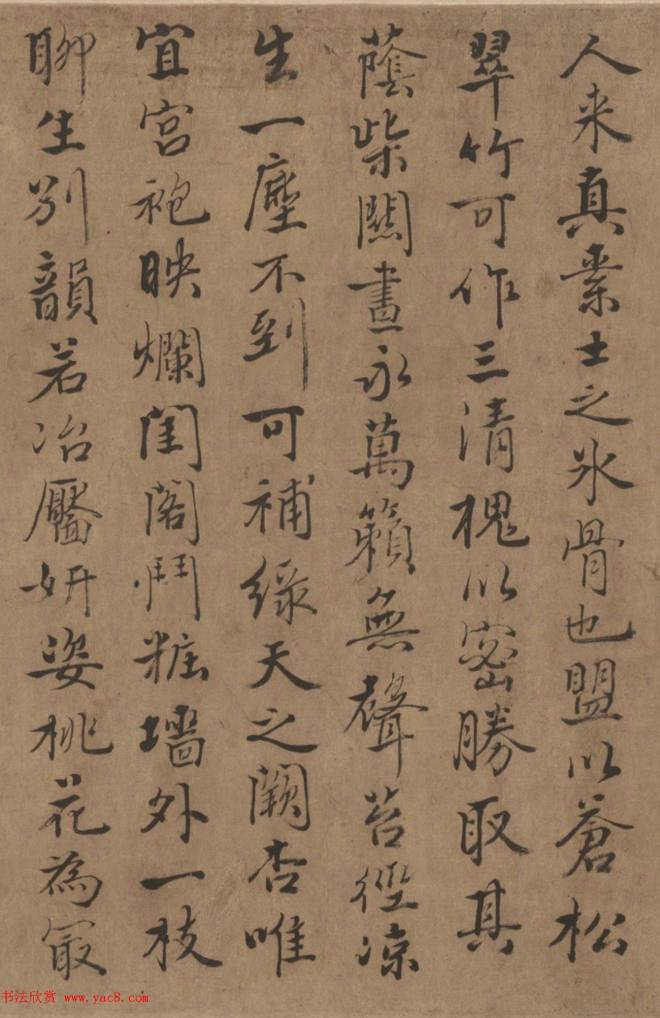 人来真素士之氷骨也盟以蒼松
翠竹可作三清槐以密勝取其
蔭柴關晝永萬籟無聲苔徑凉
生一塵不到可補緑天之闕杏唯
宜宫袍映爛閨閣鬥粧墻外一枝
聊生别韻若冶靨妍姿桃花為冣
书法欣赏 www.yac8.com